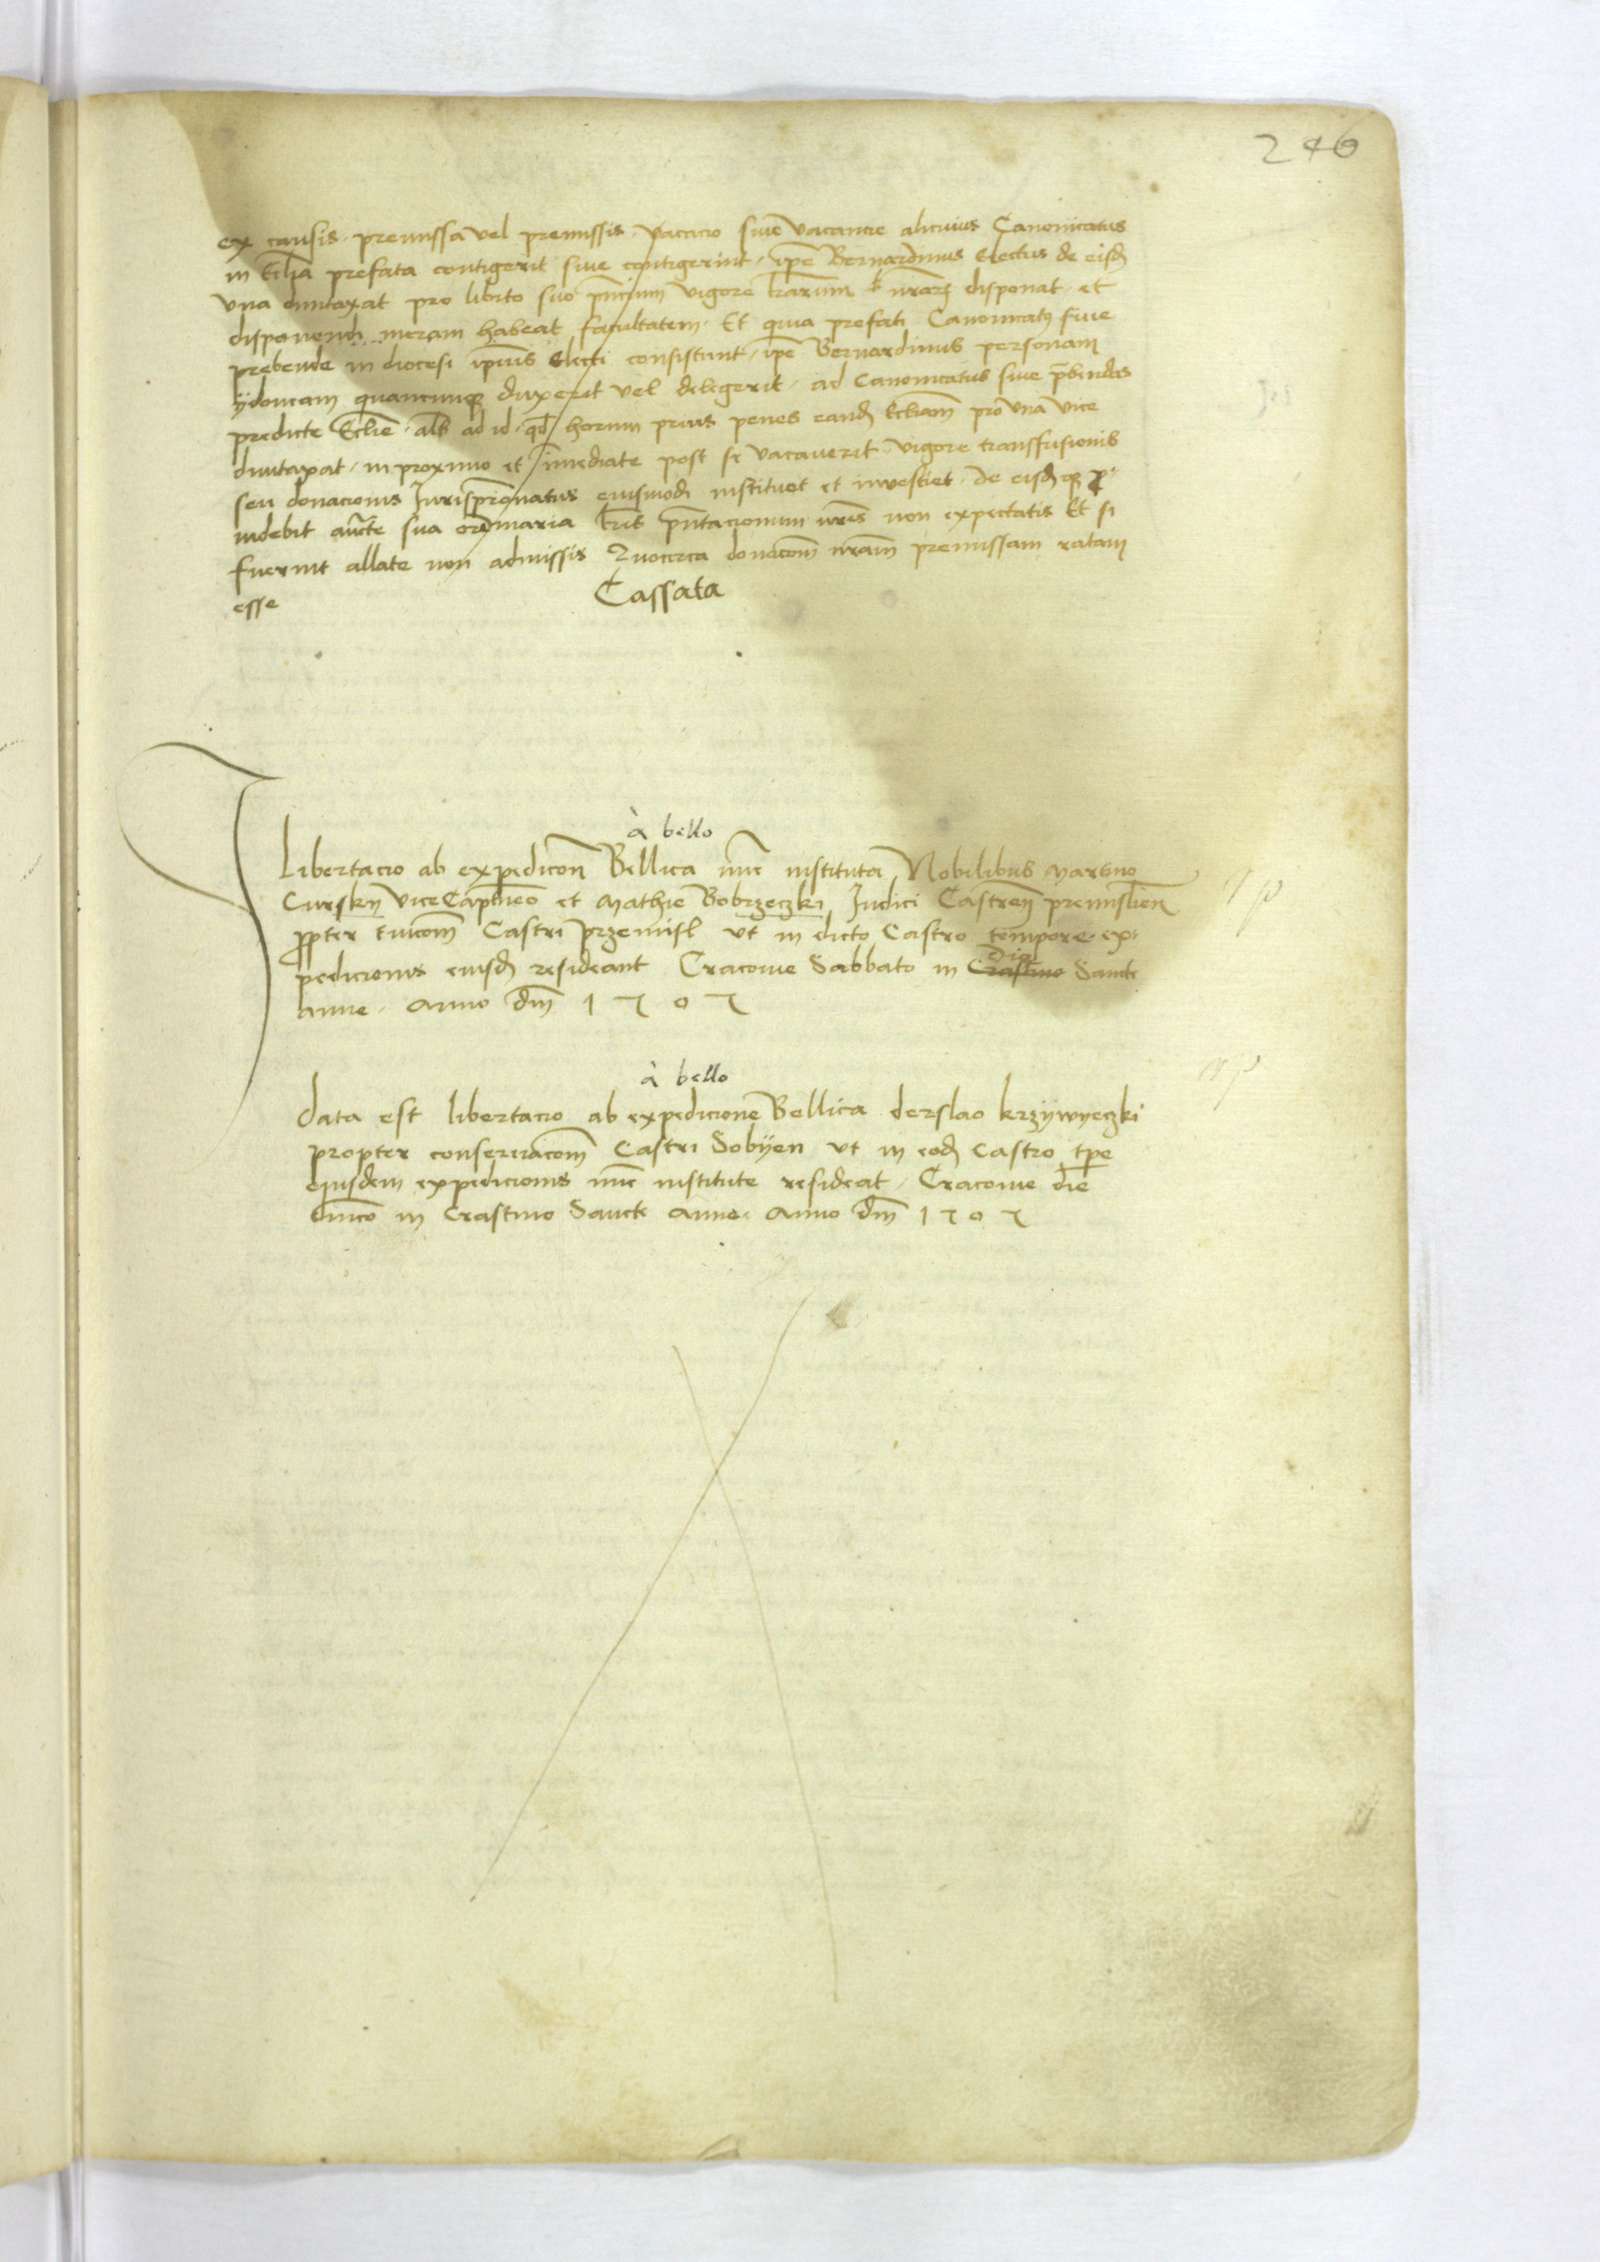 246
ex causis premissa vel premissis vacacio sive vacancie alicuius Canonicatus
in Ecclīa prefata contigerit sive contigerint ip̄e Bernardinus Electus de eisd
una duntaxat pro libito suo pn̄cium vigore l̄rarum nr̄arū disponat et
disponendi meram habeat facultatem Et quia prefati Canonicatus sive
prebende in diocesi ipīus Electi consistunt ip̄e Bernardinus personam
ydoneam quamcunque duxerit vel delegerit ad Canonicatus sive p̄bendas
predicte Ecclīe als ad id qd horum prius penes eand Ecclīam pro una vice
duntaxat in proximo et imediate post se vacaverit vigore transfusionis
seu donacionis Jurispr̄onatus eiusmodi instituet et investiet de eisdque p
videbit auc̄te sua ordinaria l̄ris pn̄tacionum nr̄is non expectatis Et si
fuerint allate non admissis Quocirca donacōm nr̄am premissam ratam
esse Cassata
à bello
Libertacio ab expedicōn Bellica nūc instituta Nobilibus Martino
Cursky ViceCapitneo et Mathie Bobrzeczki Judici Castren̄ premislien̄
propter tuicōm Castri Przemisl ut in dicto Castro tempore ex
pedicionis eiusd resideant Cracovie Sabbato in Crastino Sancte
Anne Anno dm̄ 1505
à bello
Data est libertacio ab expedicione Bellica derslao krzywyeczki
propter conservacōm Castri Sobyen ut in eod Castro tp̄e
eiusdem expedicionis nūc institute resideat Cracovie die
dn̄ico in Crastino Sancte Anne Anno dm̄ 1505